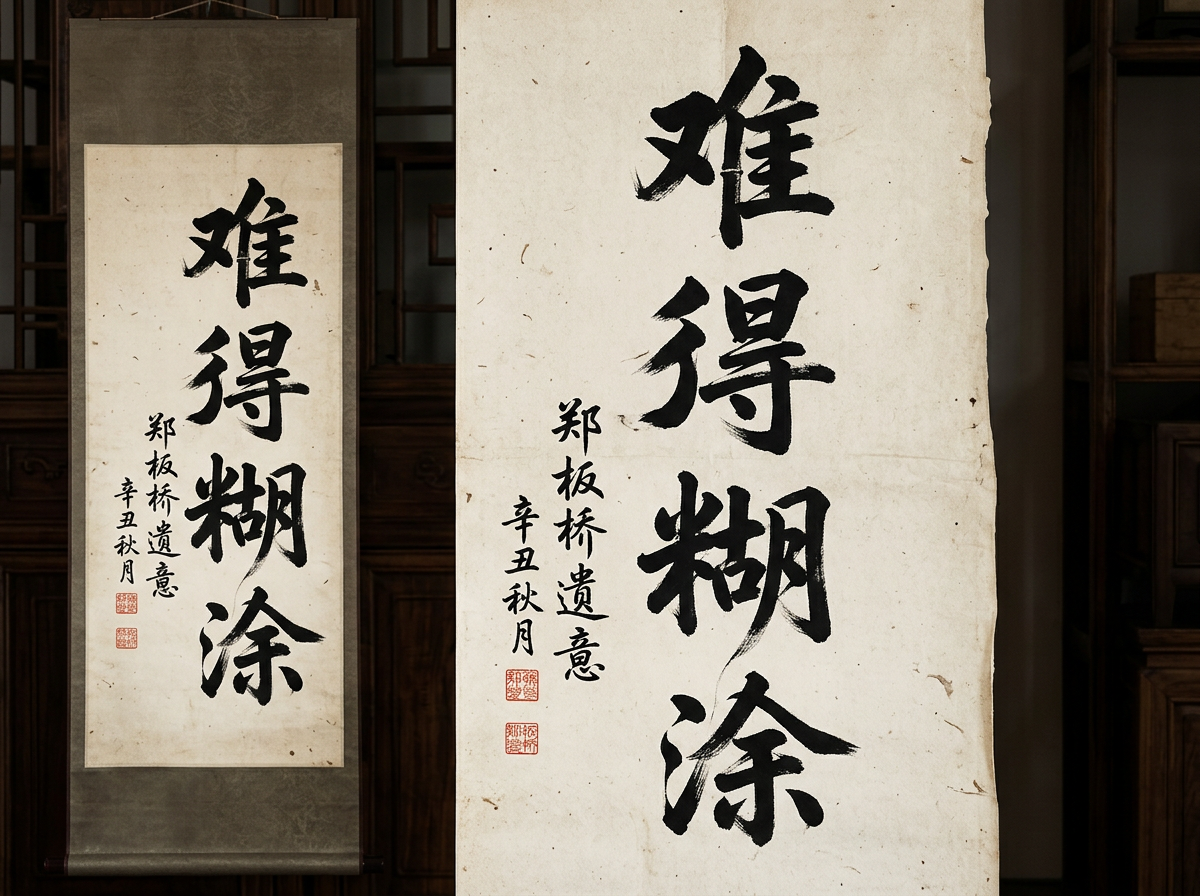 难得糊涂
郑板桥遺意
辛丑秋月
难得糊涂
郑板桥遺意
辛丑秋月